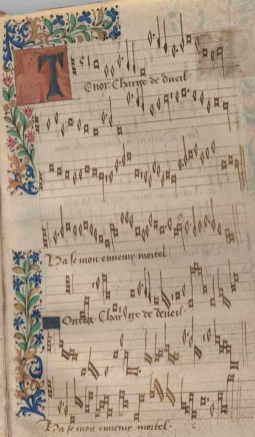 Tenor. Charge de dueil
Ha se mon ennemy mortel
Contra Charge de dueil.
Ha se mon ennemy mortel.